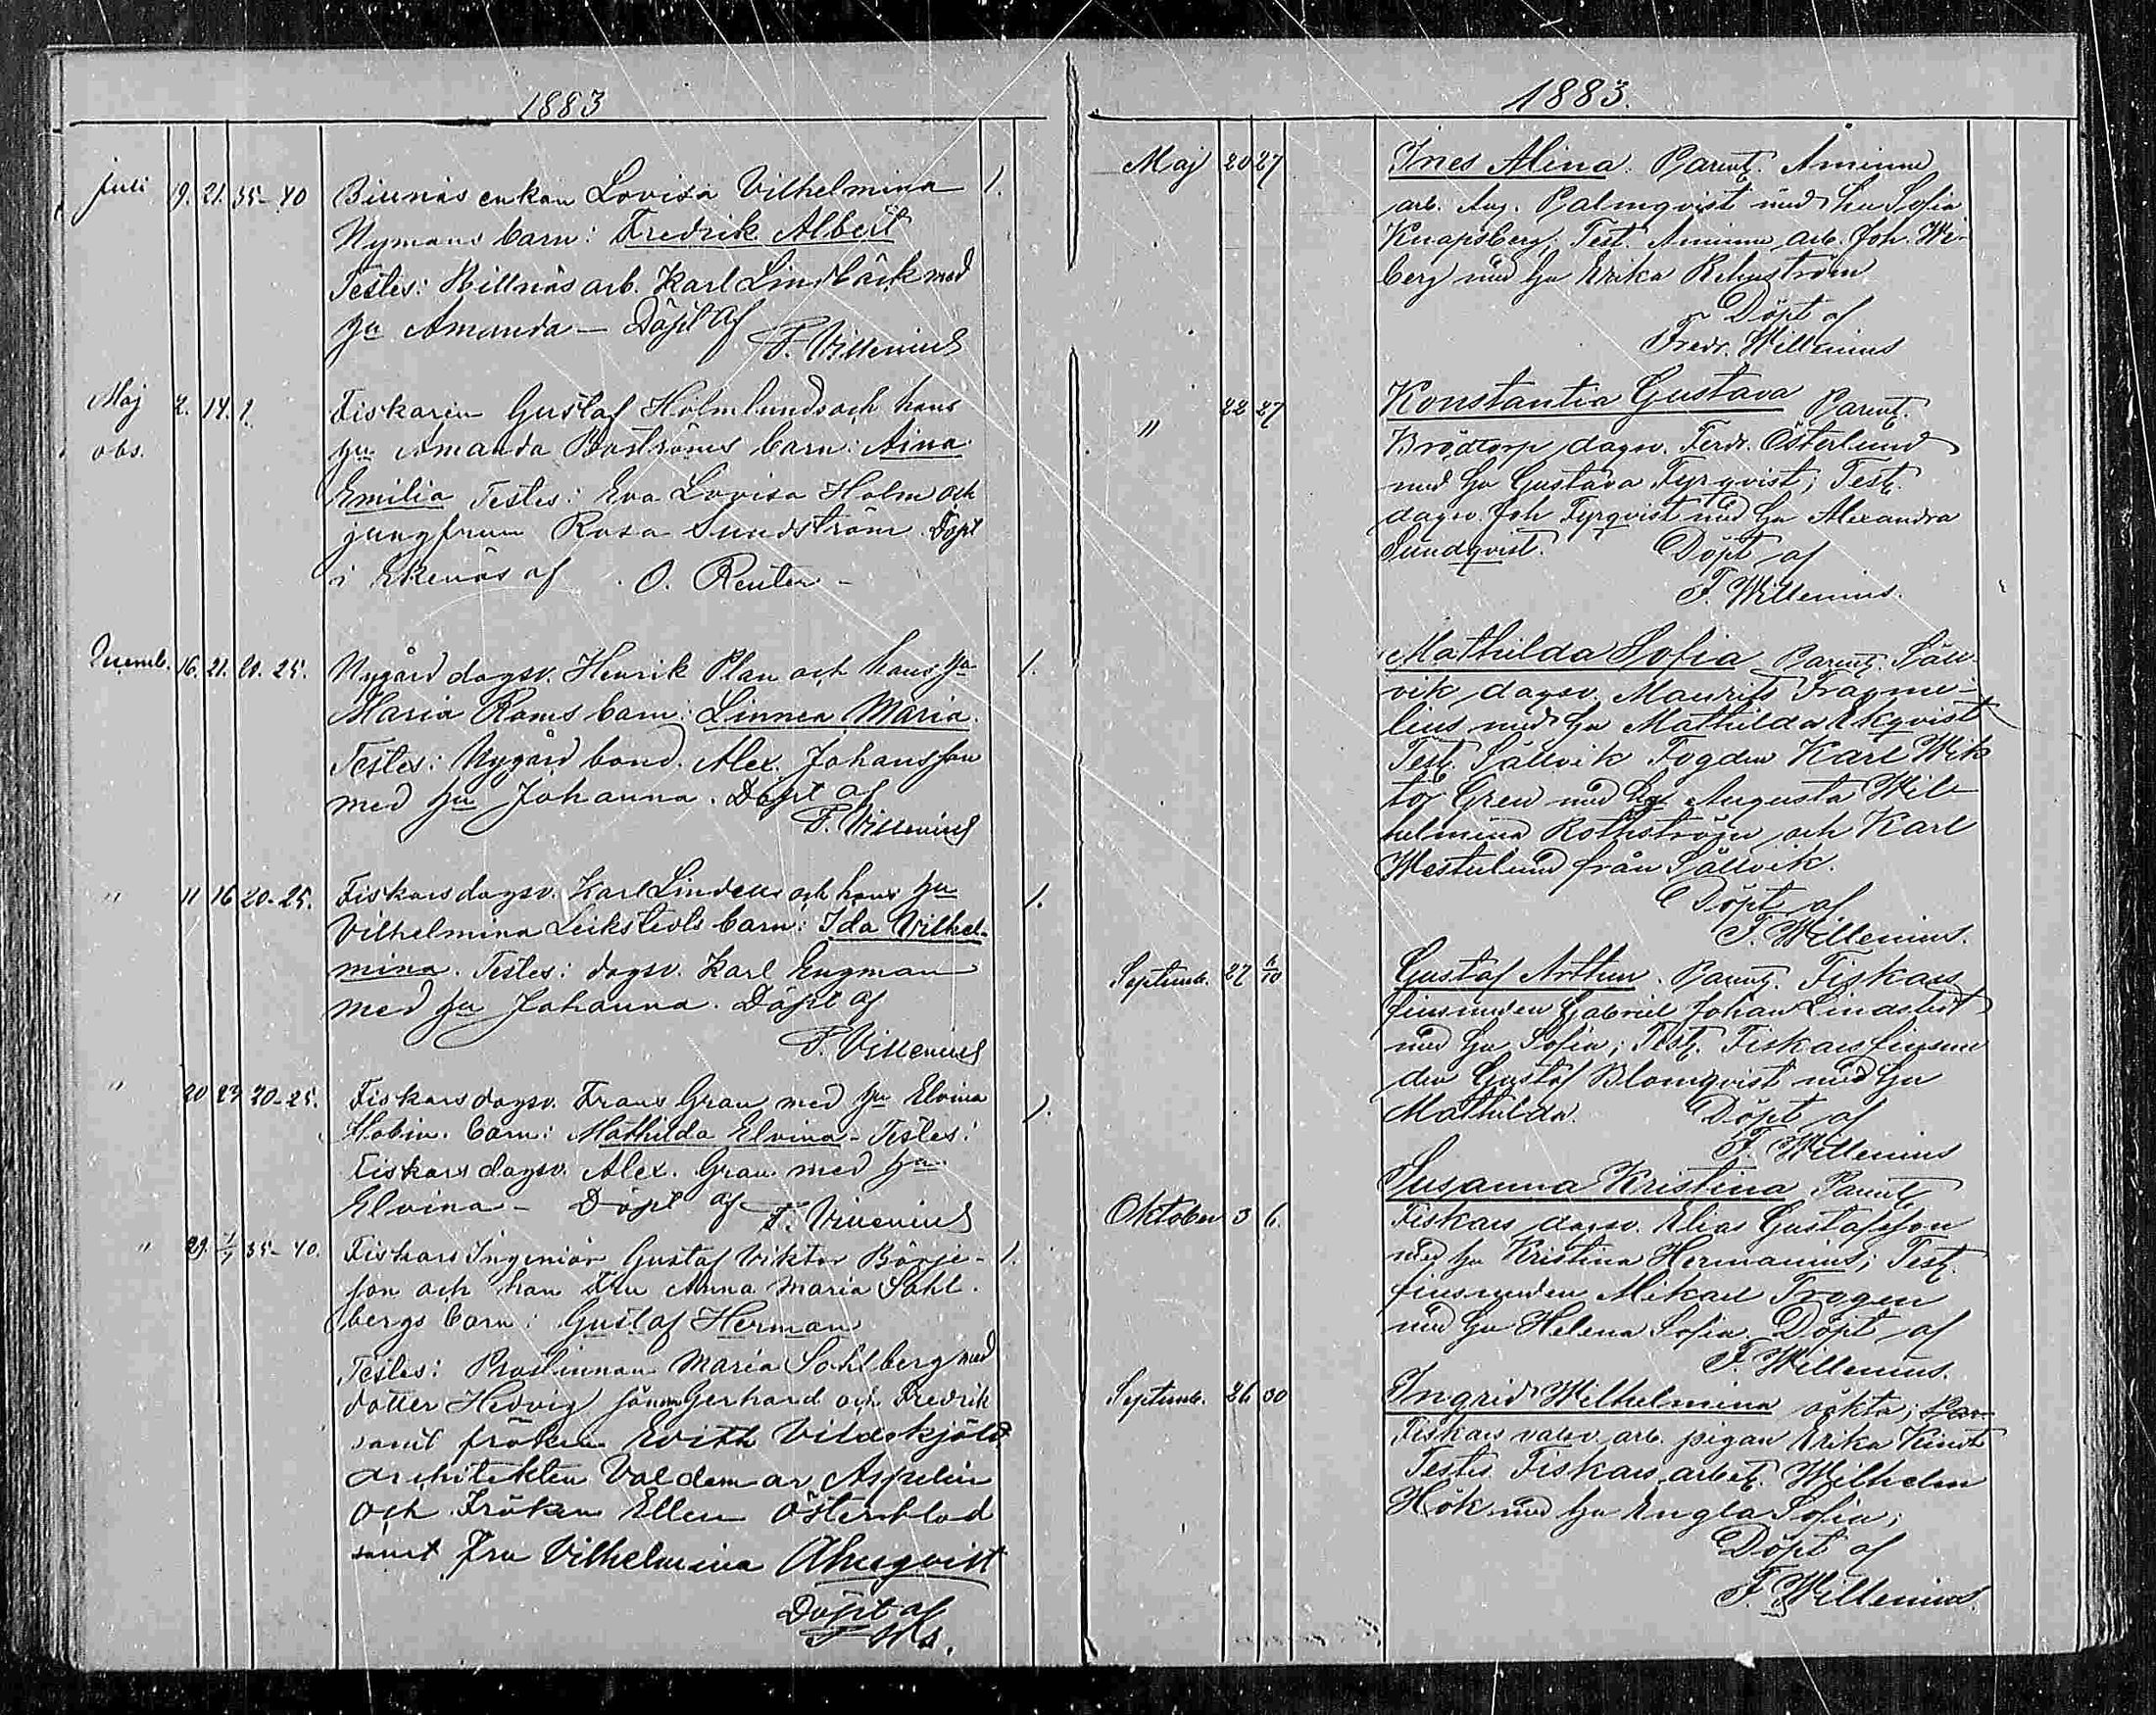 1883
Juli 19. 21. 35-40 Billnäs enkan Lovisa Vilhelmina 1.
Nymans barn: Fredrik Albert
Testes: Billnäs arb. Karl Lindbäck med
hu Amanda - Döpt af
F. Villenius
Maj 2. 14. 1. Fiskarin Gustaf Holmlunds och hans
obs. hu Amanda Boströms barn: Aina
Emilia Testes: Eva Lovisa Holm och
jungfrun Rosa Sundström. Döpt
i Ekenäs af O. Reuter -
Decemb. 16. 21. 20. 25. Nygård dagsv. Henrik Plan och hans hu 1.
Maria Roms barn: Linnea Maria.
Testes: Nygård bond. Alex. Johansson
med hu Johanna. Döpt af
F. Villenius
" 11 16 20-25. Fiskars dagsv. Karl Lindens och hans hu 1.
Vilhelmina Leikstedts barn: Ida Vilhel-
mina. Testes: dagsv. Karl Engman
med hu Johanna. Döpt af
F. Villenius
" 20 23 20-25. Fiskars dagsv. Frans Gran med hu Elvina 1.
barn: Mathilda Elvina - Testes:
Fiskars dagsv. Alex. Gran med hu
Elvina - Döpt af F. Villenius
" 29. 35-40. Fiskars Ingeniör Gustaf Viktor Börje- 1.
son och han Fru Anna Maria Sahl-
bergs barn: Gustaf Herman
Testes: Prostinnan Maria Sahlberg med
dotter Hedvig Gerhard och Fredrik
samt fröken Edith Vildskjöld
architekten Valdemar Aspelin
och Fröken Ellen Österblad
samt fru Vilhelmina Ahnqvist
Döpt af
1883.
Maj 20 27 Ines Alina. Parent. Åminne
arb. Aug. Palmqvist med hu Sofia
Knapsberg; Test. Åminne arb. Joh. Wi-
berg med hu Erika Rehnström
Döpt af
Fredr. Willenius
" 22 27 Konstantia Gustava Parent.
Brödtorp dagsv. Ferd. Österlund
med hu Gustava Fyrqvist; Test.
dagsv. Joh Fyrqvist med hu Alexandra
Sundqvist. Döpt af
F. Willenius.
Mathilda Sofia Parent. Säll-
vik dagsv. Maurits Fragme-
lius med hu Mathilda Ekqvist
Test. Sällvik Fogden Karl Wik
tor Gren med hu Augusta Wil-
helmina Rothström och Karl
Westerlund från Sällvik.
Döpt af
F. Willenius.
Septemb. 27 Gustaf Arthur. Parent. Fiskars
finsmeden Gabriel Johan Lindstedt
med hu Sofia; Test. Fiskars finsme
den Gustaf Blomqvist med hu
Mathilda. Döpt af
F. Willenius
Susanna Kristina Parent.
Oktober 3 6. Fiskars dagsv. Elias Gustafsson
med hu Kristina Hermanius; Test.
finsmeden Mikael Trogen
med hu Helena Sofia. Döpt af
F. Willenius.
Septemb. 26 30 Ingrid Wilhelmina oäkta; Par
Fiskars arb. pigan Erika
Testes Fiskars arbet. Wilhelm
Hök med hu Engla Sofia;
Döpt af
F. Willenius